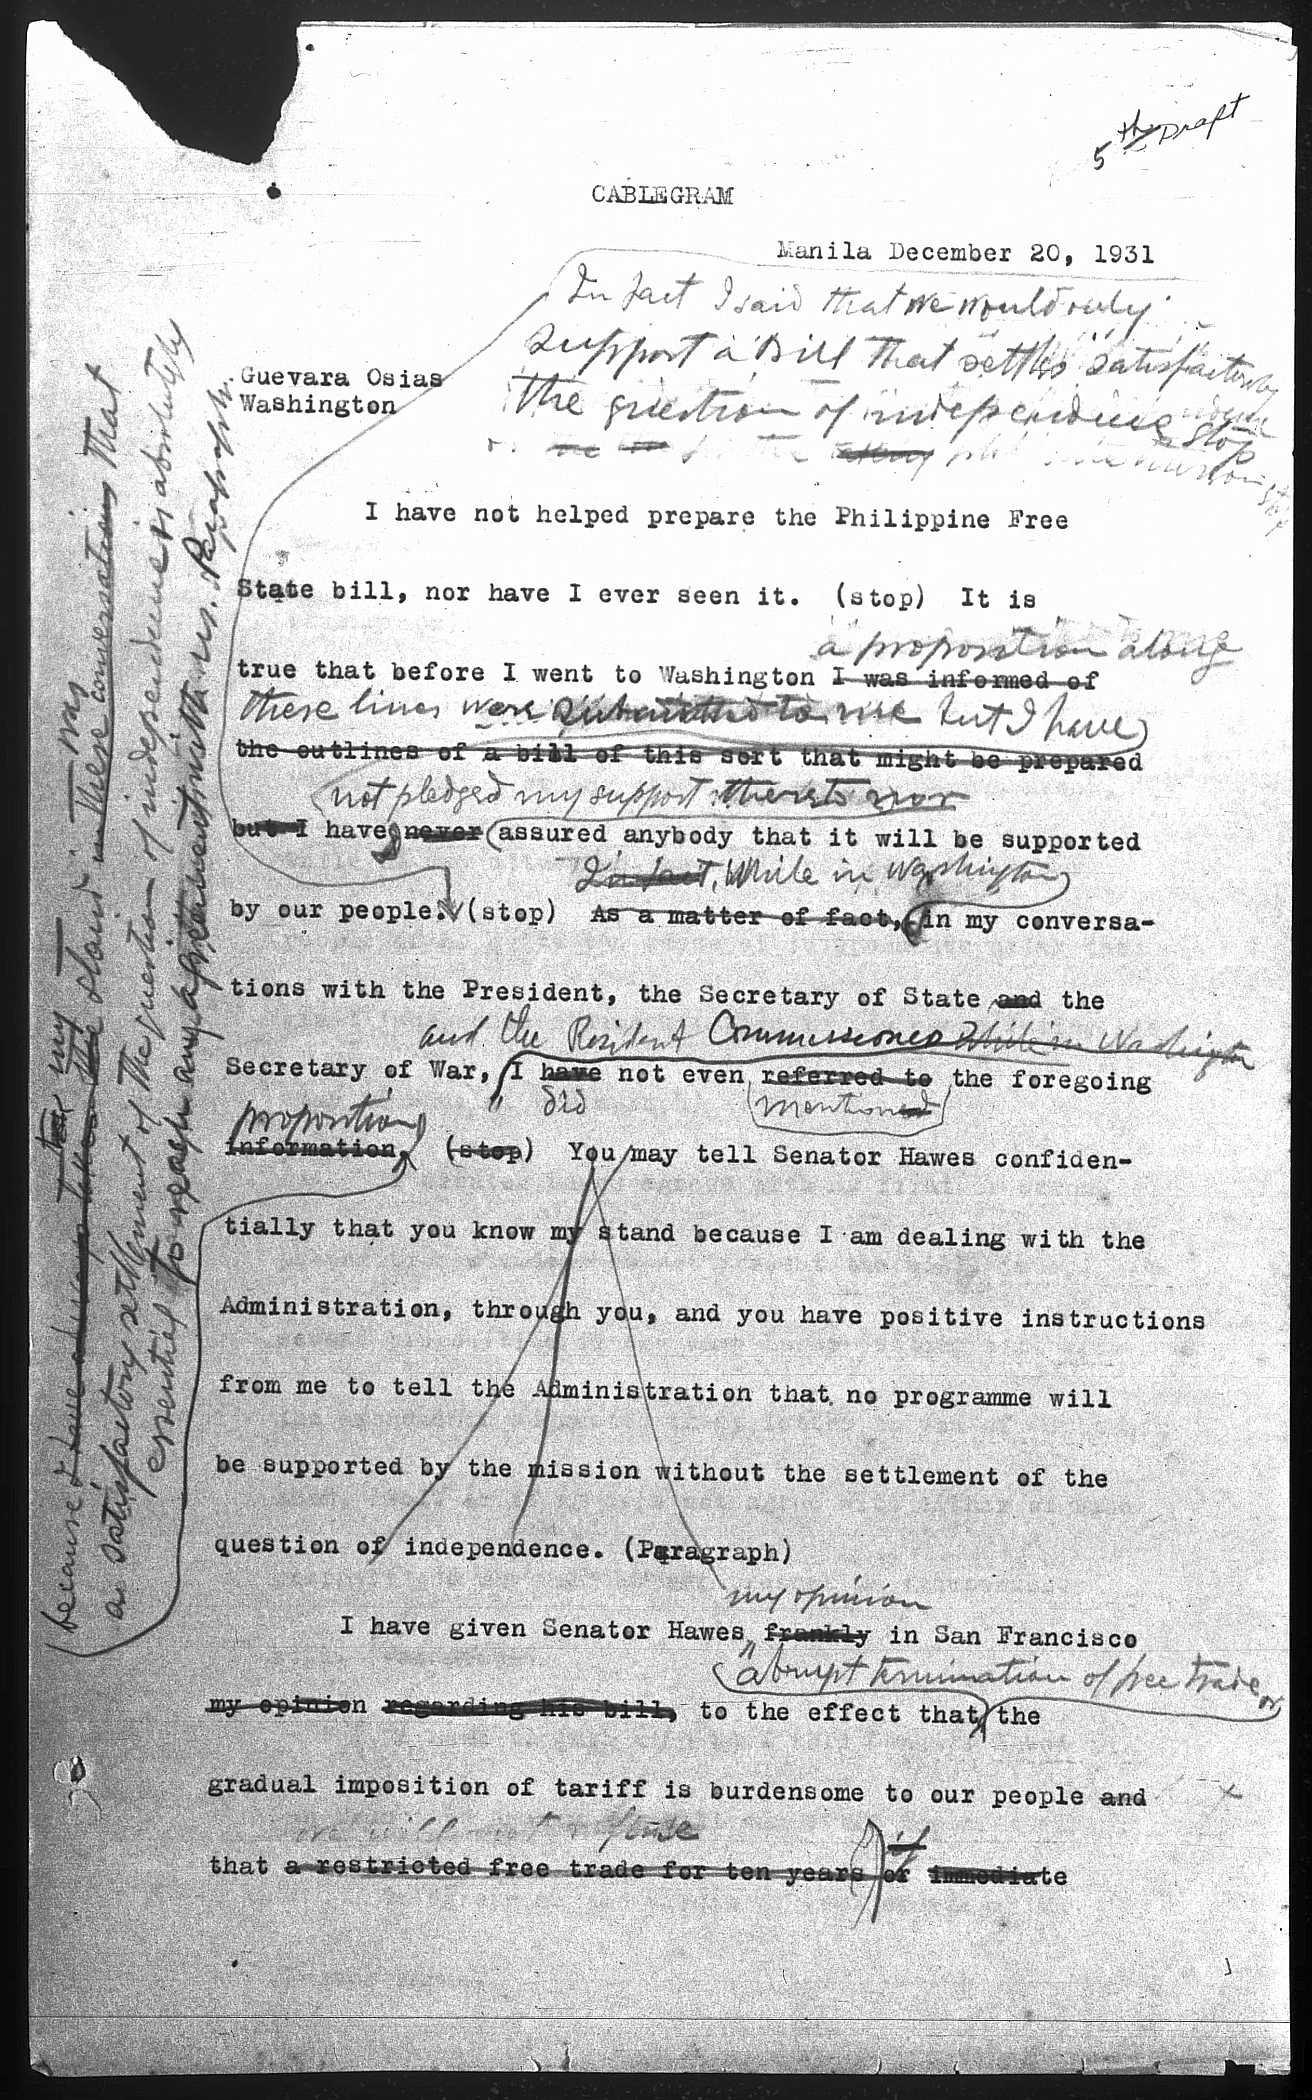 5 th Draft
CABLEGRAM
Manila December 20, 1931
In fact I said that we would only
support a Bill that settles satisfactorily
the question of independence stop
Guevara Osias
Washington
I have not helped prepare the Philippine Free
State bill, nor have I ever seen it. (stop) It is
a proposition along
true that before I went to Washington I was informed of
these lines were submitted to me but I have
the outlines of a bill of this sort that might be prepared
not pledged my support thereto nor
but I have never assured anybody that it will be supported
In fact, While in Washington
by our people. (stop) As a matter of fact, in my conversa-
tions with the President, the Secretary of State and the
and the Resident Commissioners while in Washington
Secretary of War, I have not even referred to the foregoing
did mentioned
proposition
information, (stop) You may tell Senator Hawes confiden-
tially that you know my stand because I am dealing with the
Administration, through you, and you have positive instructions
from me to tell the Administration that no programme will
be supported by the mission without the settlement of the
question of independence. (Paragraph)
my opinion
I have given Senator Hawes frankly in San Francisco
abrupt termination of free trade or
my opinion regarding his bill, to the effect that the
gradual imposition of tariff is burdensome to our people and
we will not refuse
that a restricted free trade for ten years or immediate
if
because I have always taken the stand in these conversations that
my
a satisfactory settlement of the question of independence is absolutely
essential to reach any agreement with us. Paragraph.